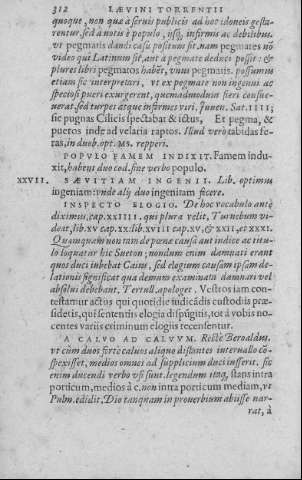 312 LÆVINI TORRENTII
quoque, non quæ à seruis publicis ad hoc idoneis gesta-
rentur, sed à notis è populo, ijsq́; infirmis ac debilibus.
vt pegmaris dandi casu positum sit, nam pegmares nō
video qui Latinum sit, aut à pegmate deduci possit: &
plures libri pegmatos habēt, vnus pegmatis. possumus
etiam sic interpretari, vt ex pegmate non ingenui ac
spectosi pueri exurgerent, quemadmodum fieri consue-
uerat, sed turpes atque infirmes viri. Juuen. Sat. IIII;
sic pugnas Cilicis spectabat & ictus, Et pegma, &
pueros inde ad velaria raptos. Illud verò tabidas fe-
ras, in duob. opt. MS. repperi.
POPVLO FAMEM INDIXIT. Famem indu-
xit, habent duo cod. sine verbo populo.
XXVII. SÆVITIAM INGENII. Lib. optimus
ingeniam: vnde alij duo ingenitam fecere.
INSPECTO ELOGIO. De hoc vocabulo antè
diximus, cap. XXIIII. qui plura velit, Turnebum vi-
deat, lib. XV cap. XX. lib. XVIII cap. XV, & XXII, et XXXI.
Quamquam non tam de pœnæ causa aut indice ac titu-
lo loquatur hic Sueton; nondum enim damnati erant
quos duci iubebat Caius, sed elogium causam ipsam de-
lationis significat qua demum examinata damnari vel
absolui debebant. Tertull. apologet. Vestros iam con-
testamur actus qui quotidie iudicādis custodiis præ-
sidetis, qui sententiis elogia dispūgitis, tot à vobis no-
centes variis criminum elogiis recensentur.
A CALVO AD CALVVM. Rectè Beroaldus.
vt cùm duos fortè caluos aliquo distantes interuallo cō-
spexisset, medios omnes ad supplicium duci iusserit. sic
enim ducendi verbo vsi sunt. legendum itaq́, stans intra
porticum, medios à c. non intra porticum mediam, vt
Pulm. edidit. Dio tanquam in prouerbium abiisse nar-
rat, à